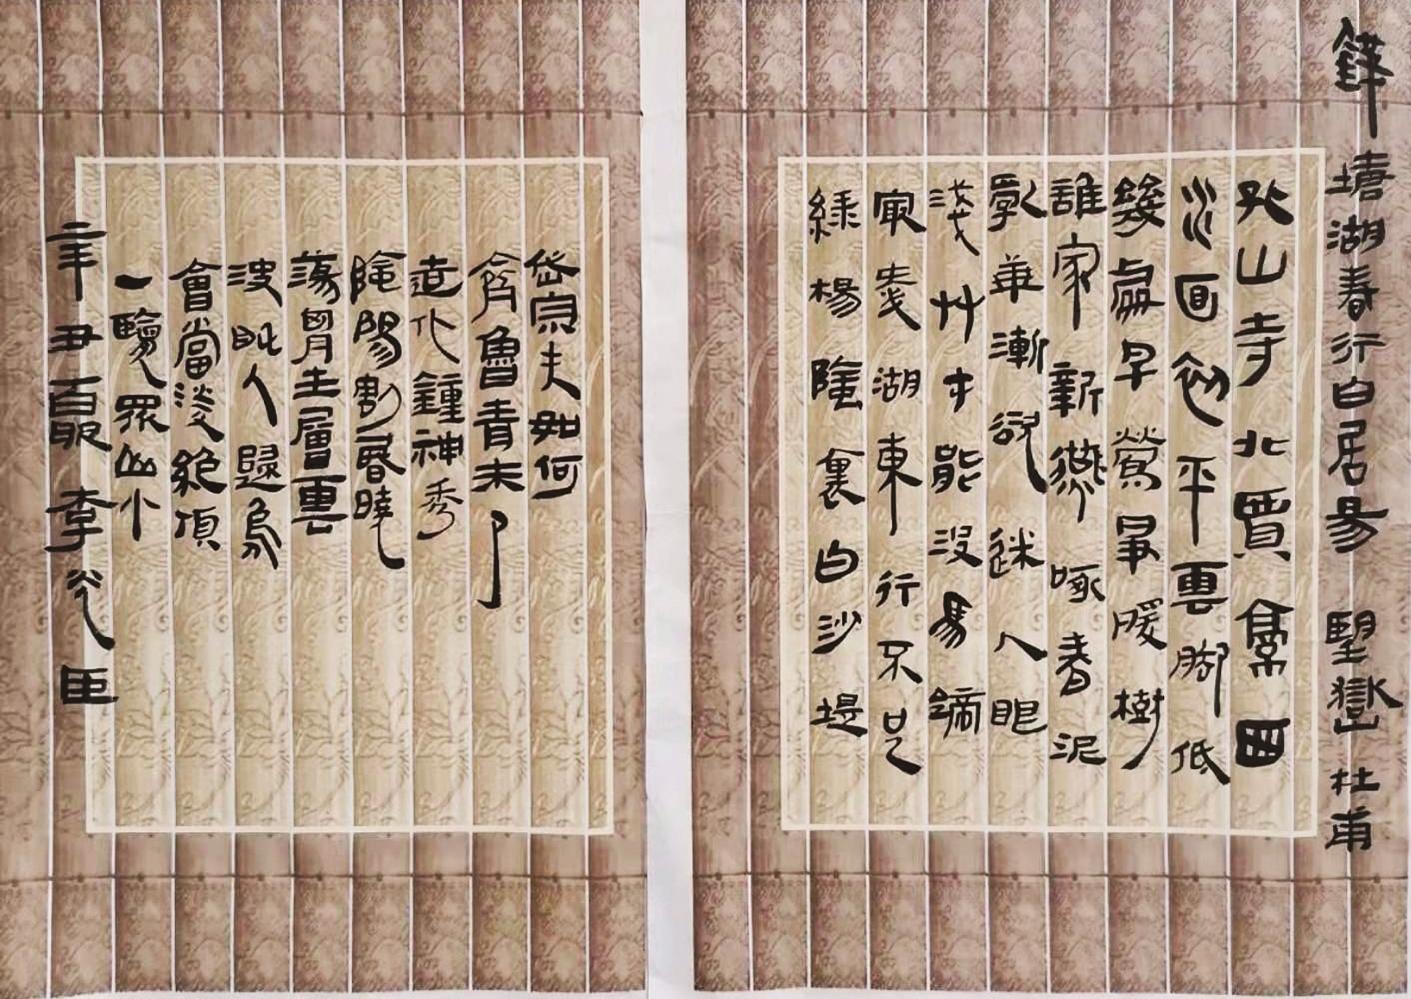 錢塘湖春行白居易 望嶽杜甫
孤山寺北賈亭西
水面初平雲腳低
幾處早鶯爭暖樹
誰家新燕啄春泥
亂華漸欲迷人眼
淺艸才能沒馬蹄
最愛湖東行不足
綠楊陰裏白沙堤
岱宗夫如何
齊魯青未了
造化鍾神秀
陰陽割昏曉
蕩胸生層雲
決眥入歸鳥
會當凌絕頂
一覽眾山小
李